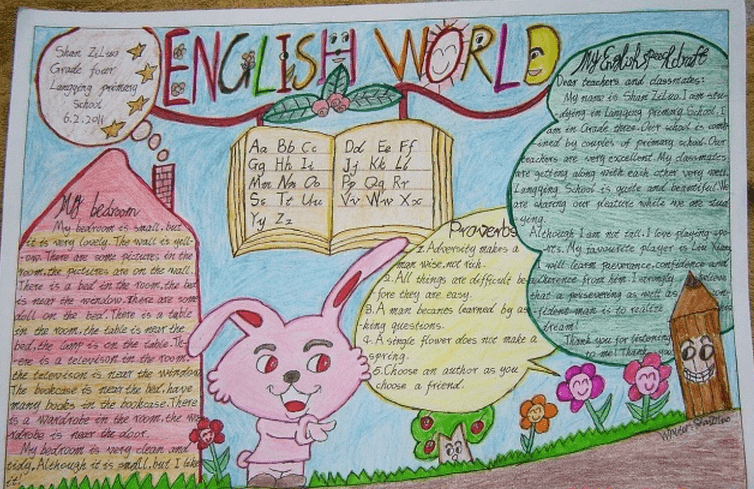 ENGLISH WORLD
Shan ZiLuo
Grade four
Langqing primary
School
6.2.2011
Aa Bb Cc
Gg Hh Ii
Mm Nn Oo
Ss Tt Uu
Yy Zz
Dd Ee Ff
Jj Kk Ll
Pp Qq Rr
Vv Ww Xx
My English speech draft
Dear teachers and classmates:
My name is Shan ZiLuo. I am stu-
-dying in Langqing primary School. I
am in Grade three. Our school is comb
-ined by couples of primary school. Our
teachers are very excellent. My classmates
are getting along with each other very well.
Langqing School is quite and beautiful. We
are sharing our pleature while we are stud
ying.
Although I am not tall, I love playing spo-
rts. My favourite player is Liu Xiang
will learn perverance, confidence and
from him. I strongly believe
that a persevering as well as con-
fident man is to realize
dream!
Thank you for listening
to me! Thank you
My bedroom
My bedroom is small, but
it is very lovely. The wall is yell-
-ow. There are some pictures in the
room, the pictures are on the wall.
There is a bed in the room, the bed
is near the window. There are some
doll on the bed. There is a table
in the room, the table is near the
bed, the lamp is on the table. Th-
-ere is a televison in the room,
the televison is near the window
The bookcase is near the bed, have
many books in the bookcase. There
is a wardrobe in the room, the wa
rdrobe is near the door.
My bedroom is very clean and
tidy. Although it is small, but I like
it!
Proverbs
1. Adversity makes a
man wise, not rich.
2. All things are difficult be-
-fore they are easy.
3. A man becomes learned by as
-king questions.
4. A single flower does not make a
spring.
5. Choose an author as you
choose a friend.